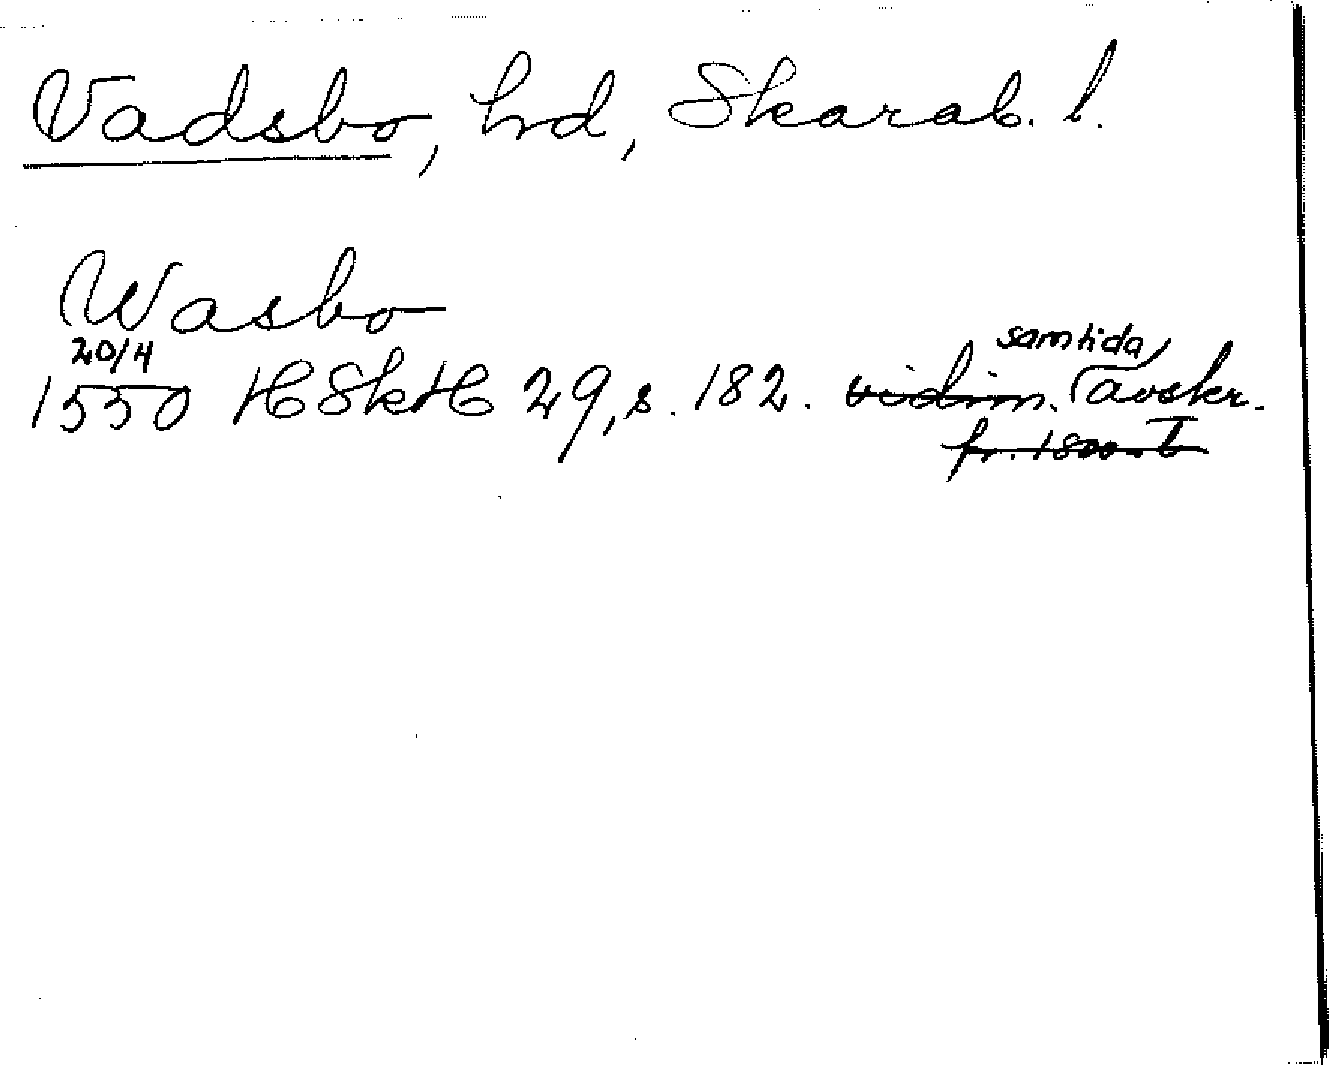 Vadsbo, hrd, Skarab. l.
Wasbo
20/4
1550 HSkH 29, s. 182. vidim. samtida avskr.
fr. 1800-t